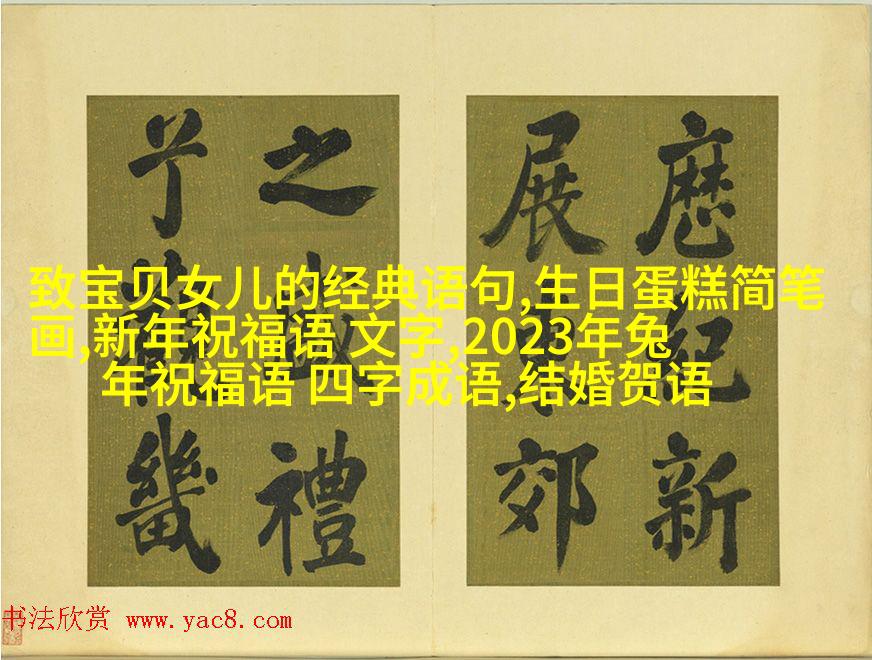 致宝贝女儿的经典语句,生日蛋糕简笔
画,新年祝福语 文字,2023年兔
年祝福语 四字成语,结婚贺语
紀新
展郊
之禮
觀幾
书法欣赏 www.yac8.com